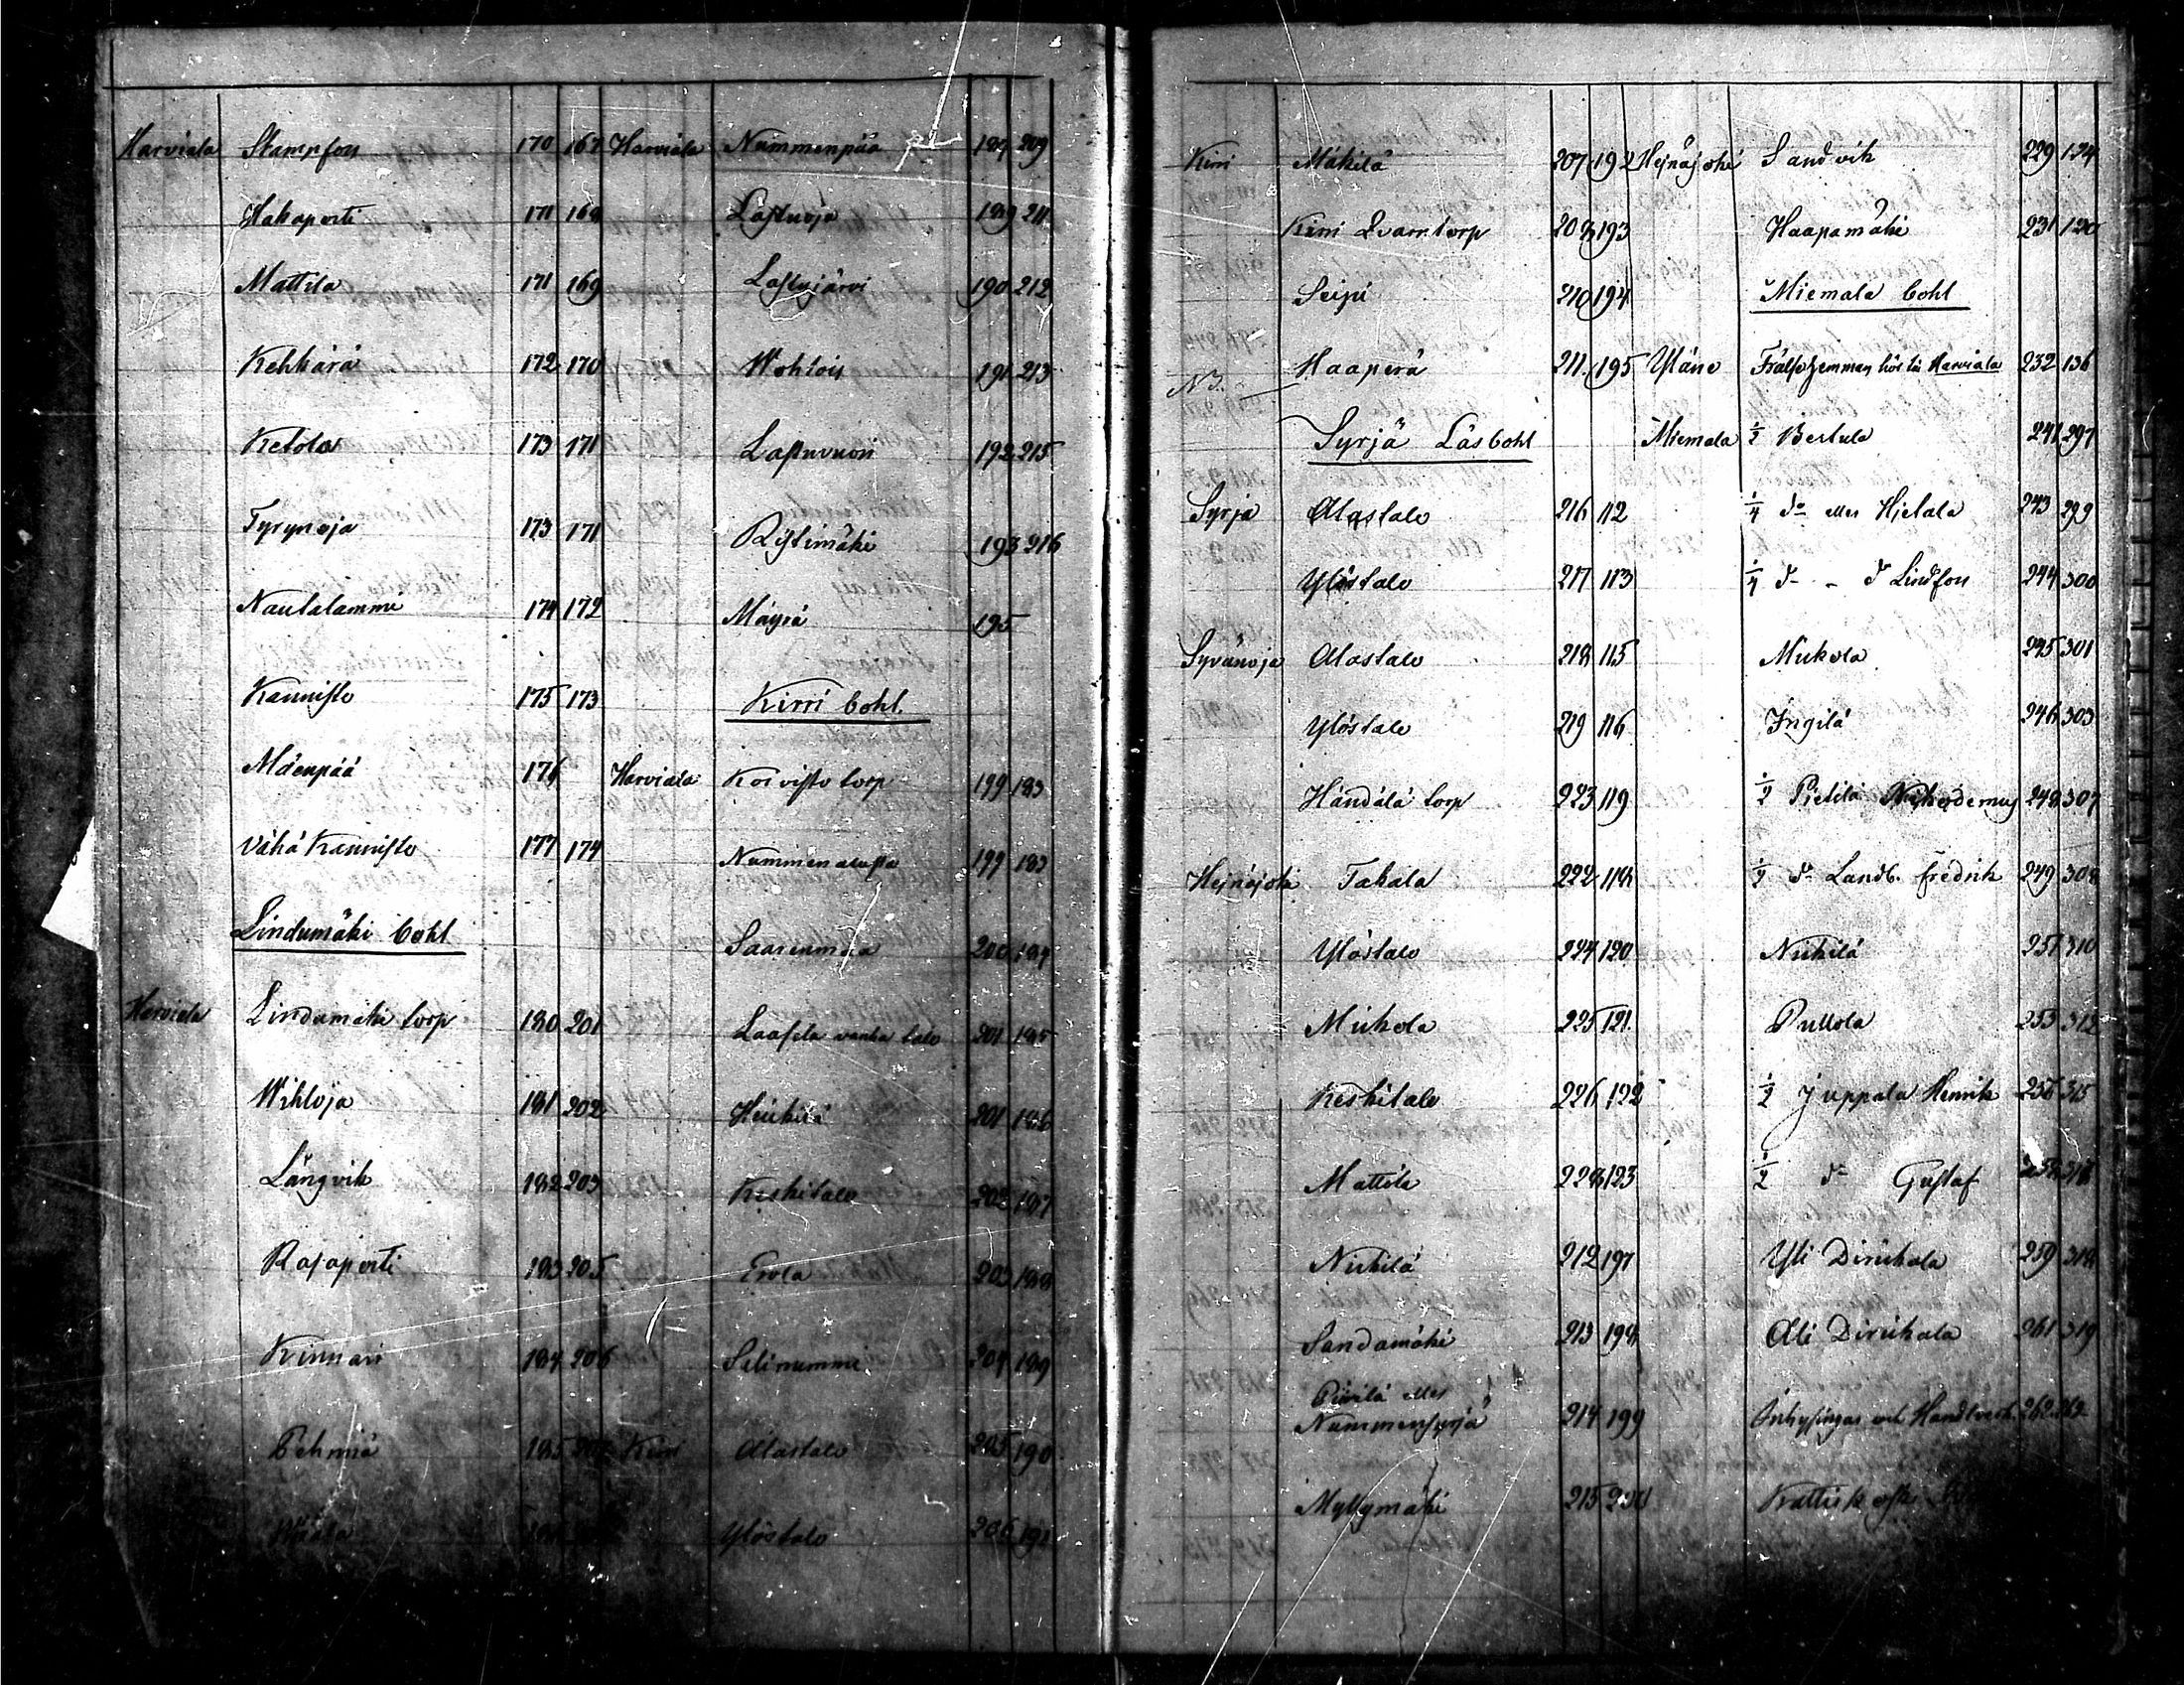 Harviala Stampfors 170 167
Hakaporti 171 168
Mattila 171 169
Kehkärä 172 170
Ketola 173 171
Tyrynoja 173 171
Nautalammi 174 172
Kannisto 175 173
Mäenpää 176
Vähä Kannisto 177 174
Lindumäki bohl
Harviala Lindumäki torp 180 201
Wihloja 181 202
Långvik 182 203
Rajaporti 183 205
Kinnari 184 206
Pehmiä 185
Harviala Nummenpää 187 209
Lastuoja 189 211
Lastujärvi 190 212
Wohlois 191 213
Lastuvuori 192 215
Ristimäki 193 216
Mäyrä 195
Kirri bohl.
Harviala Koivisto torp 199 183
Nummenalusta 199 183
Saarenmaa 200 184
Laasila vanha talo 201 185
Heikilä 201 186
Keskitalo 202 187
Erola 203 188
Selinummi 204 189
Kirri Alastalo 205 190
Ylöstalo 206 191
Kirri Mäkilä 207 192
Kirri Qvarntorp 208 193
Seipi 210 194
N3. Haaperä 211. 195
Syrjä Läsbohl
Syrjä Alastalo 216 112
Ylöstalo 217 113
Syvänoja Alastalo 218 115
Ylöstalo 219 116
Händälä torp 223 119
Hejnäjoki Takala 222 118
Ylöstalo 224 120
Mickola 225 121.
Keskitalo 226 122
Mattila 228 123
Nickilä 212 197
Sandamäki 213 198
Pirilä eller
Nummensyrjä 214 199
Myllymäki 215 200
Hejnäjoki Sandvik 229 124
Haapamäki 231 130
Miemala bohl
Yläne Frälsehemman hör till Harviala 232 136
Miemala ½ Bertula 241 297
¼ do eller Hjetala 243 299
¼ do - do Lindfors 244 300
Mickola 245 301
Ingilä 246 303
½ Pietilä Nikodemus 248 307
½ do Landb. Fredrik 249 308
Nickilä 251 310
Pullola 253 312
½ Juppala Henrik 256 315
½ do Gustaf
Yli Dirickala 259 318
Ali Dirickala 261 319
Inhysingar och Handtverk. 262 262